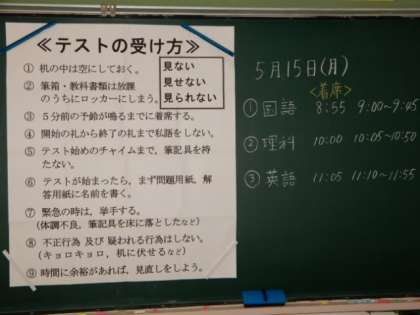 ≪テストの受け方≫
見ない
見せない
見られない
① 机の中は空にしておく。
② 筆箱・教科書類は放課
のうちにロッカーにしまう。
③ 5分前の予鈴が鳴るまでに着席する。
④ 開始の礼から終了の礼まで私語をしない。
⑤ テスト始めのチャイムまで、筆記具を持
たない。
⑥ テストが始まったら、まず問題用紙、解
答用紙に名前を書く。
⑦ 緊急の時は、挙手する。
(体調不良、筆記具を床に落としたなど)
⑧ 不正行為 及び 疑われる行為はしない。
(キョロキョロ、机に伏せるなど)
⑨ 時間に余裕があれば、見直しをしよう。
5月15日(月)
<着席>
① 国語 8:55 9:00~9:45
② 理科 10:00 10:05~10:50
③ 英語 11:05 11:10~11:55